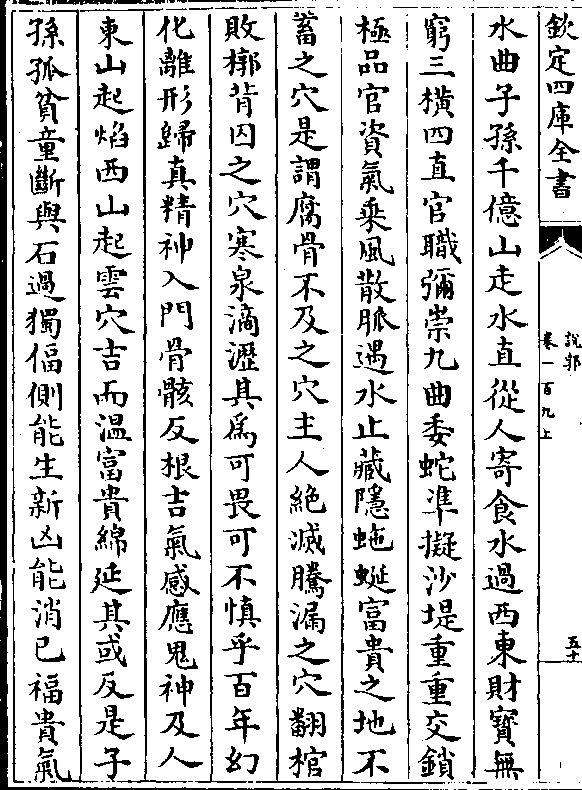 欽定四庫全書
說郛
卷一百九上
五十
水曲子孫千億山走水直從人寄食水過西東財寶無
窮三橫四直官職彌崇九曲委蛇準擬沙堤重重交鎖
極品官資氣乘風散脈遇水止藏隱虵蜒富貴之地不
蓄之穴是謂腐骨不及之穴主人絶滅騰漏之穴翻棺
敗槨背囚之穴寒泉滴瀝其為可畏可不慎乎百年幻
化離形歸真精神入門骨骸反根吉氣感應鬼神及人
東山起焰西山起雲穴吉而温富貴綿延其或反是子
孫孤貧童斷與石過獨偪側能生新凶能消已福貴氣